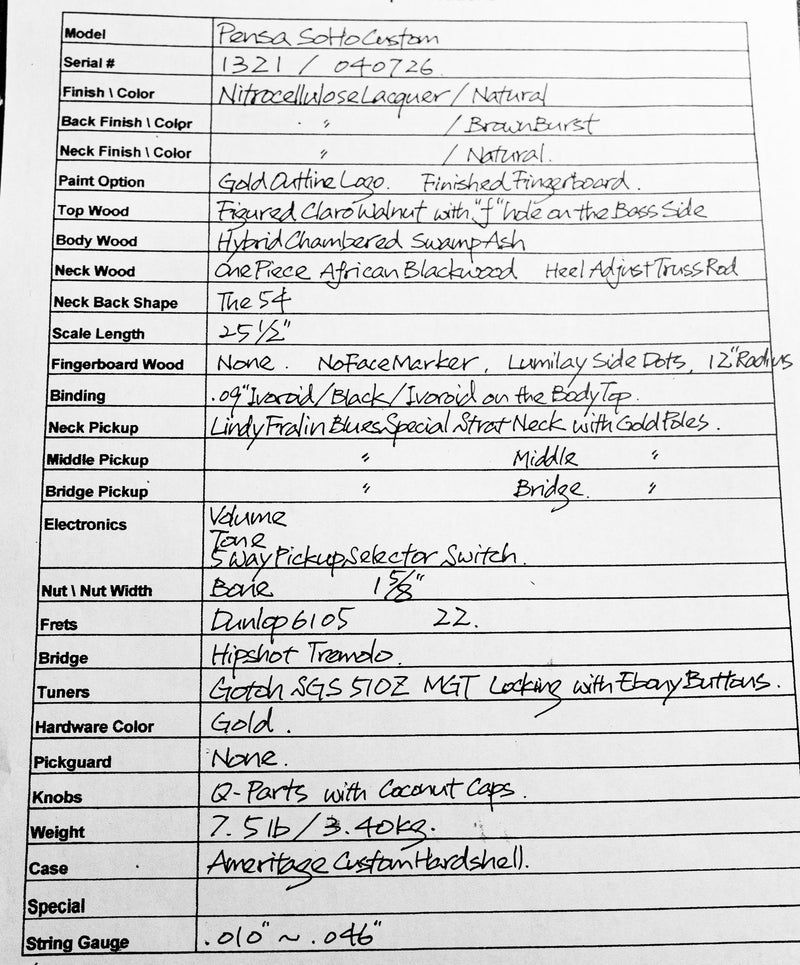 Model Pensa SoHo Custom
Serial # 1321 / 040726
Finish \ Color Nitrocellulose Lacquer / Natural
Back Finish \ Color 〃 / Brown Burst
Neck Finish \ Color 〃 / Natural.
Paint Option Gold Outline Logo. Finished Fingerboard.
Top Wood Figured Claro Walnut with "f" hole on the Bass Side
Body Wood Hybrid Chambered Swamp Ash
Neck Wood One Piece African Blackwood Heel Adjust Truss Rod
Neck Back Shape The 54
Scale Length 25 1/2"
Fingerboard Wood None. No Face Marker, Lumilay Side Dots, 12" Radius
Binding .09" Ivoroid / Black / Ivoroid on the Body Top.
Neck Pickup Lindy Fralin Blues Special Strat Neck with Gold Poles.
Middle Pickup 〃 Middle 〃
Bridge Pickup 〃 Bridge. 〃
Electronics Volume
Tone
5 Way Pickup Selector Switch.
Nut \ Nut Width Bone 1 5/8"
Frets Dunlop 6105 22.
Bridge Hipshot Tremolo.
Tuners Gotoh SGS 510Z MGT Locking with Ebony Buttons.
Hardware Color Gold.
Pickguard None.
Knobs Q-Parts with Coconut Caps.
Weight 7.5 lb / 3.40kg.
Case Ameritage Custom Hardshell.
Special
String Gauge .010" ~ .046"